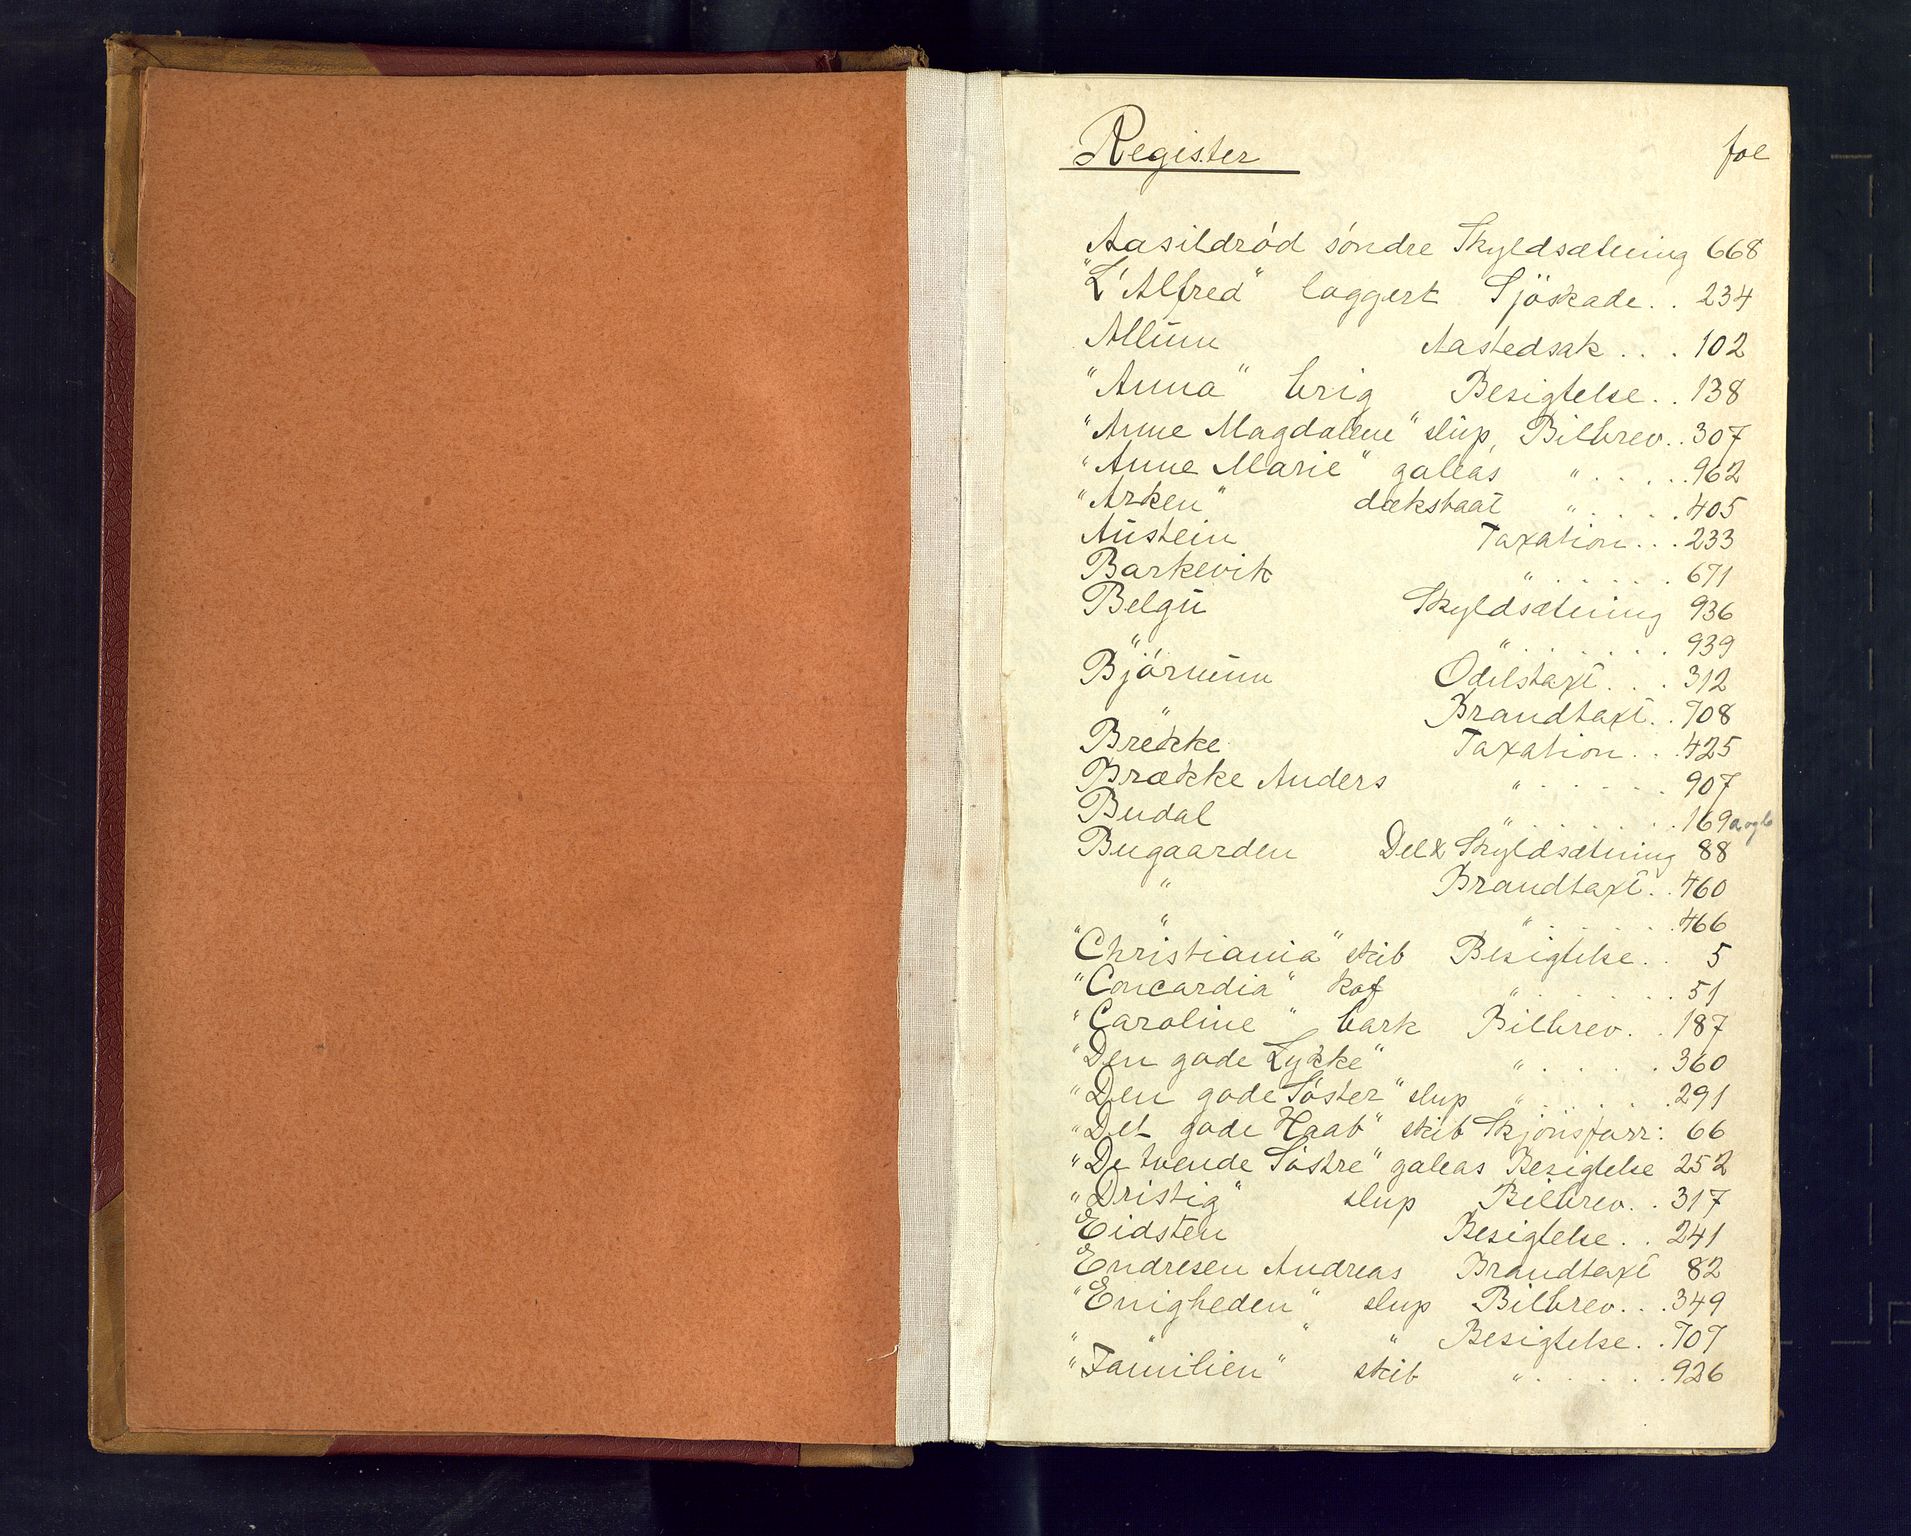 Register fol
Aasildröd söndre Skyldsætning 668
"L'Alfred" loggert Sjöskade . . 234
Allum Aastedsak . . . 102
"Anna" brig Besigtelse . . 138
"Anne Magdalene" slup, Bilbrev . . 307
"Anne Marie" galeas " . . . . . 962
"Arken" dæksbaat " . . . . . 405
Austein Taxation . . . 233
Barkevik " . . . . . . 671
Belgu Skyldsætning 936
" " . . . . . . 939
Björnum Odelstaxt . . . 312
" Brandtaxt . . 708
Brekke Taxation . . . 425
Brække Anders " . . . . . . 907
Budal " . . . . . . 169 a og b
Bugaarden Del & Skyldsætning 88
" Brandtaxt . . 460
" " . . . . . . 466
"Christiania" skib Besigtelse . . 5
"Concordia" kof " . . . . . . 51
"Caroline" bark Bilbrev . . 187
"Den gode Lykke" " . . . . . 360
"Den gode Söster" slup " . . . . . 291
"Det gode Haab" skib Skjönsforr: 66
"De tvende Söstre" galeas Besigtelse 252
"Dristig" slup Bilbrev . . 317
Eidsten Besigtelse . . 241
Endresen Andreas Brandtaxt 82
"Enigheden" slup Bilbrev . . . 349
" " " " Besigtelse . . 707
"Familien" skib " . . . . . . 926